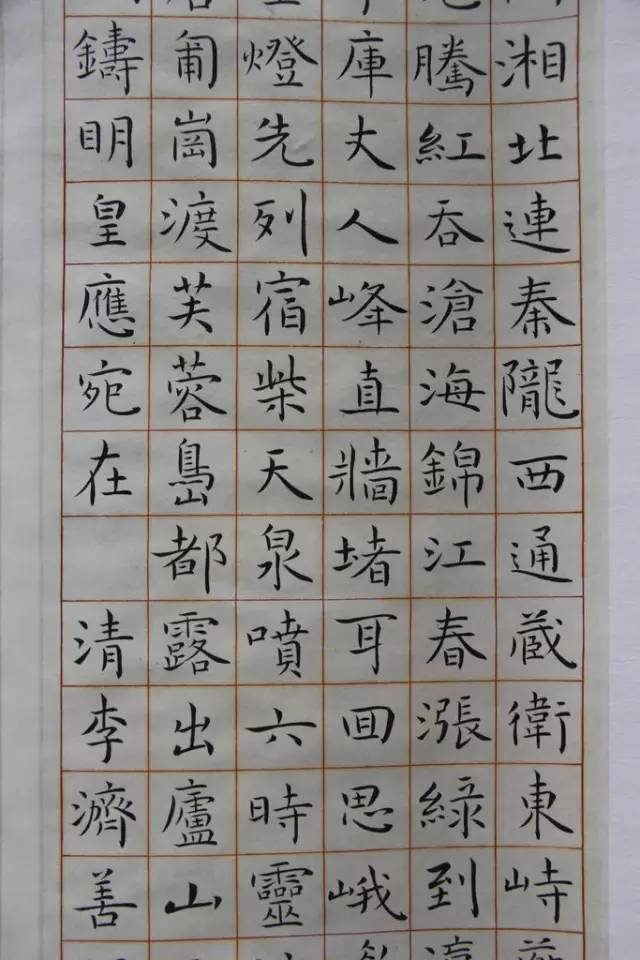 湘北連秦隴西通蔵衛東峙
騰紅吞滄海錦江春漲綠到
庫丈人峰直牆堵耳囬思峨
燈先列宿柴天泉噴六時靈
崗渡芙蓉島都露出廬山
鑄明皇應宛在 清李濟善